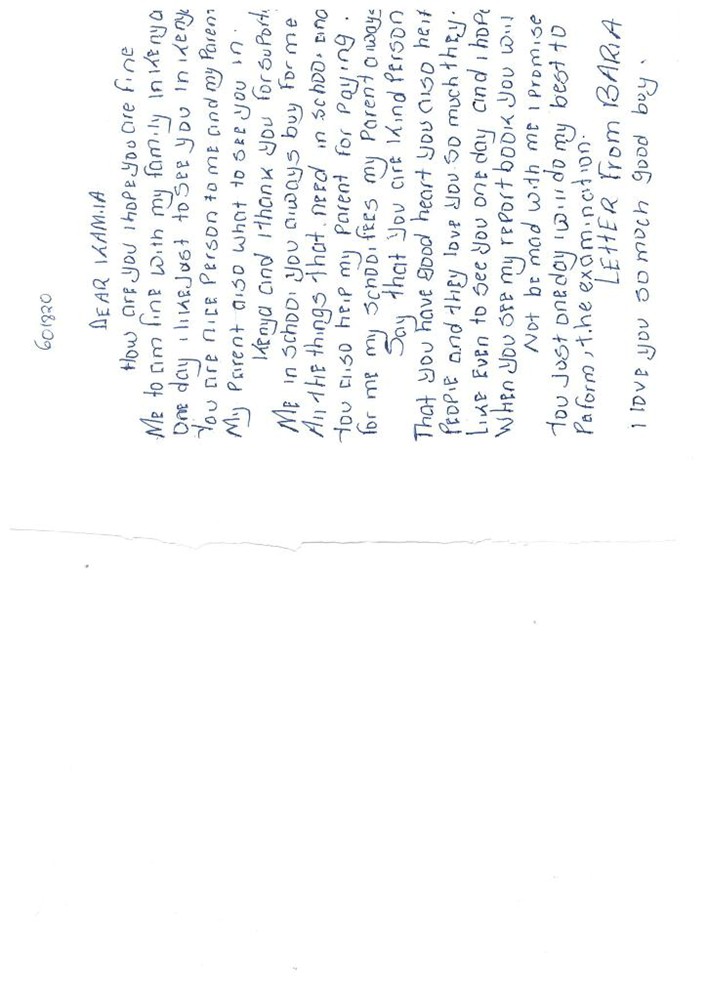 601820
DEAR KAMIA
How are you I hope you are fine
Me to am fine with my family In Kenya
One day i like Just to see you In Kenye
You are nice Person to me and my Paren
My Parent also what to see you in.
Kenya and I thank you for suport
Me in school you always buy for me
All the things that need in school and
You also help my Parent for Paying.
for me my school fees my Parent always
Say that you are Kind Person
That you have good heart you also help
People and they love you so much they.
Like Even to see you one day and I hope
When you see my report book you will
Not be mad with me I promise
You Just one day I will do my best to
Paform, the examination.
LETTER From BARIA
I love you so much good buy.